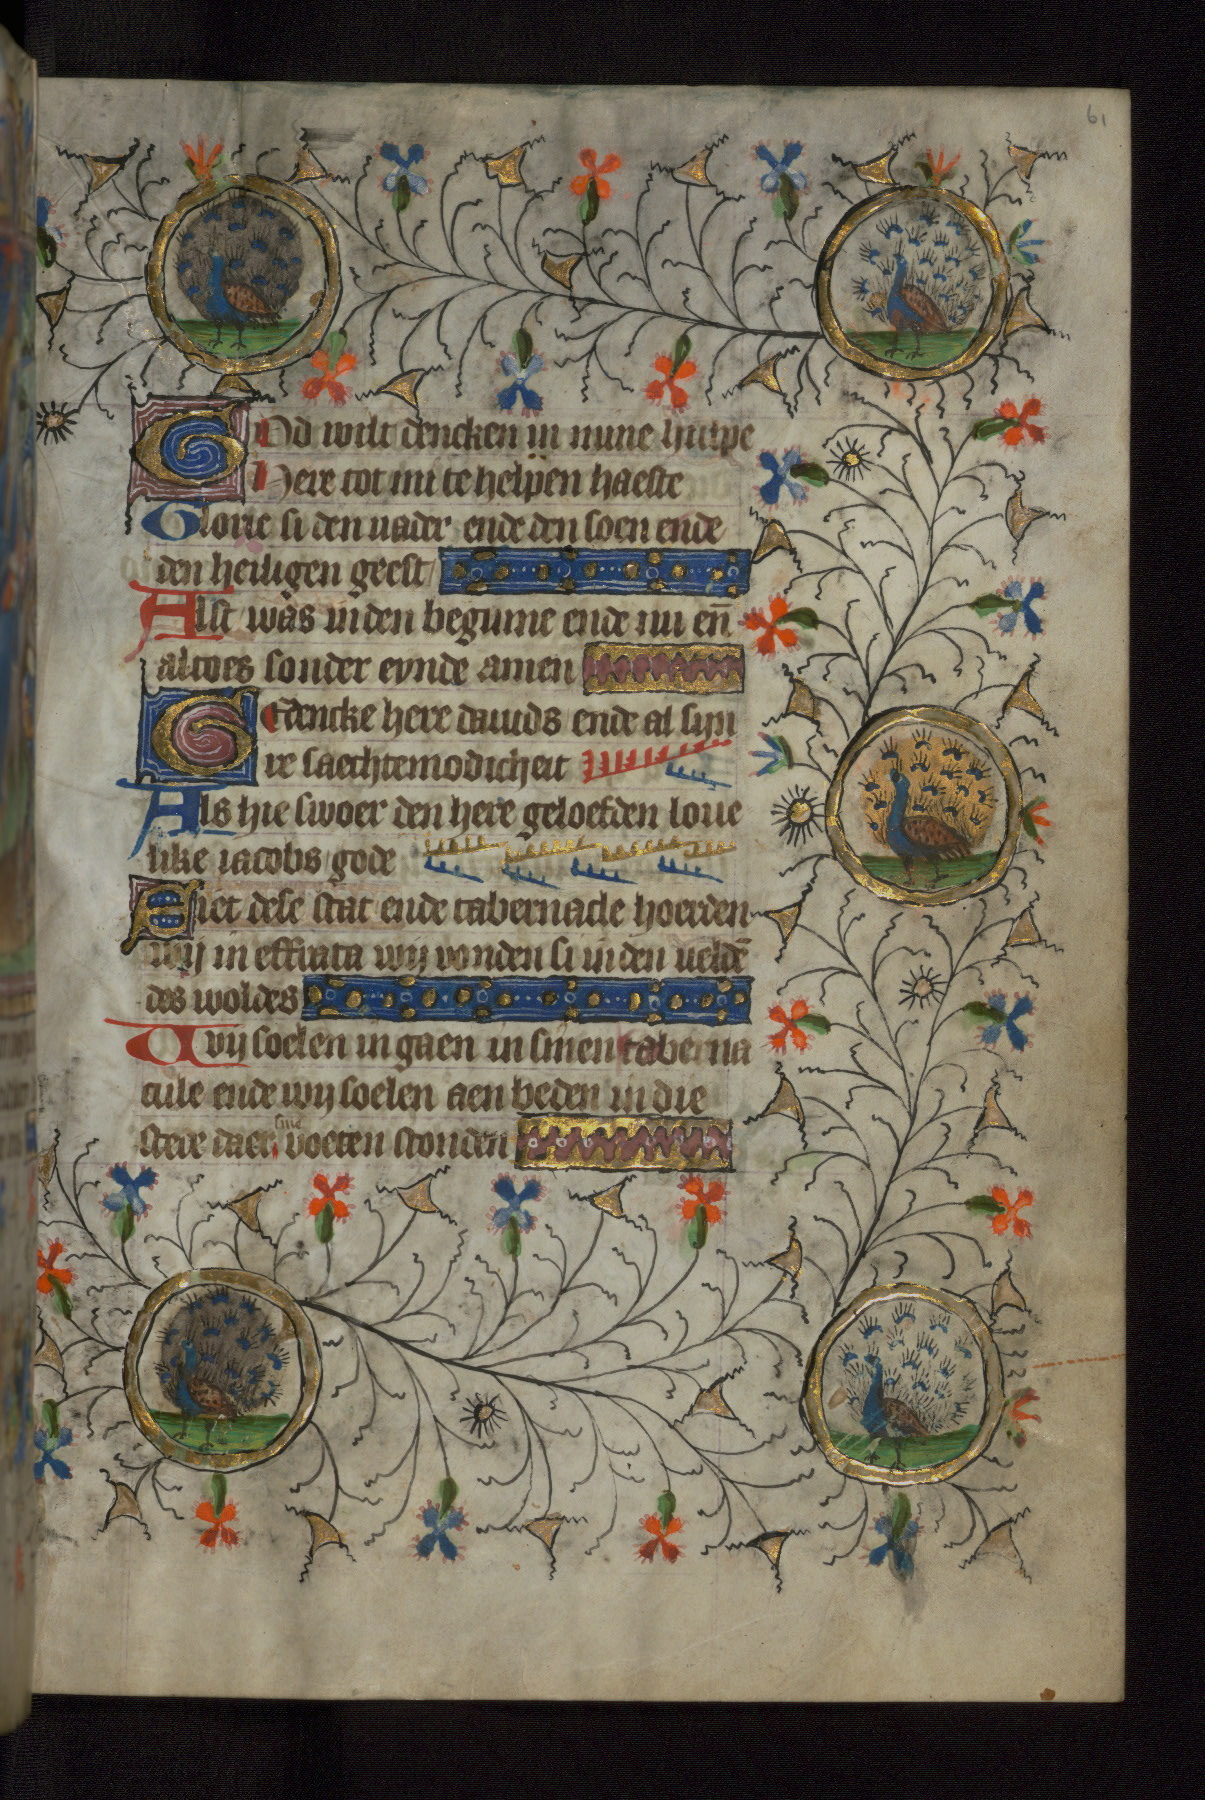 61
God wilt dencken in mine hulpe
Here tot mi te helpen haeste
Glorie si den vader ende den soen ende
den heiligen geest
Alst was inden beginne ende nu en̄
altoes sonder eynde amen
Gedencke here dauids ende al siin
re saechtemodicheit
Als hie swoer den here geloefden loue
like iacobs gode
Siet dese stat ende tabernacle hoerden
wij in effrata wij vonden si inden veldē
des woldes
Wij soelen in gaen in sinen taberna
cule ende wij soelen aen beden in die
sine
stere daer voeten stonden